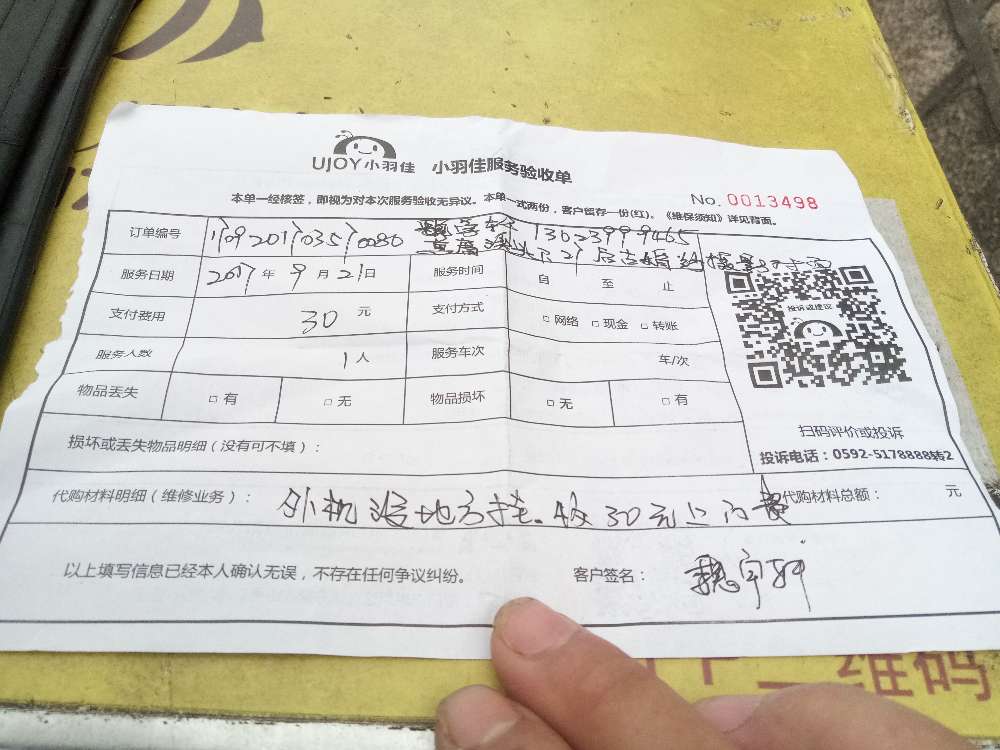 UJOY小羽佳 小羽佳服务验收单
本单一经核签，即视为对本次服务验收无异议。本单一式两份，客户留存一份(红)。《维保须知》详见背面。
No. 0013498
订单编号 13623999465
服务日期 2017年9月21日 服务时间 自 至 止
支付费用 30元 支付方式 □网络 □现金 □转账
投诉或建议
服务人数 1人 服务车次 车/次
物品丢失 □有 □无 物品损坏 □无 □有
扫码评价或投诉
投诉电话：0592-5178888转2
损坏或丢失物品明细（没有可不填）：
代购材料明细（维修业务）： 外机没地方挂。收30元上门费 代购材料总额： 元
以上填写信息已经本人确认无误，不存在任何争议纠纷。 客户签名： 魏宇轩
二维码